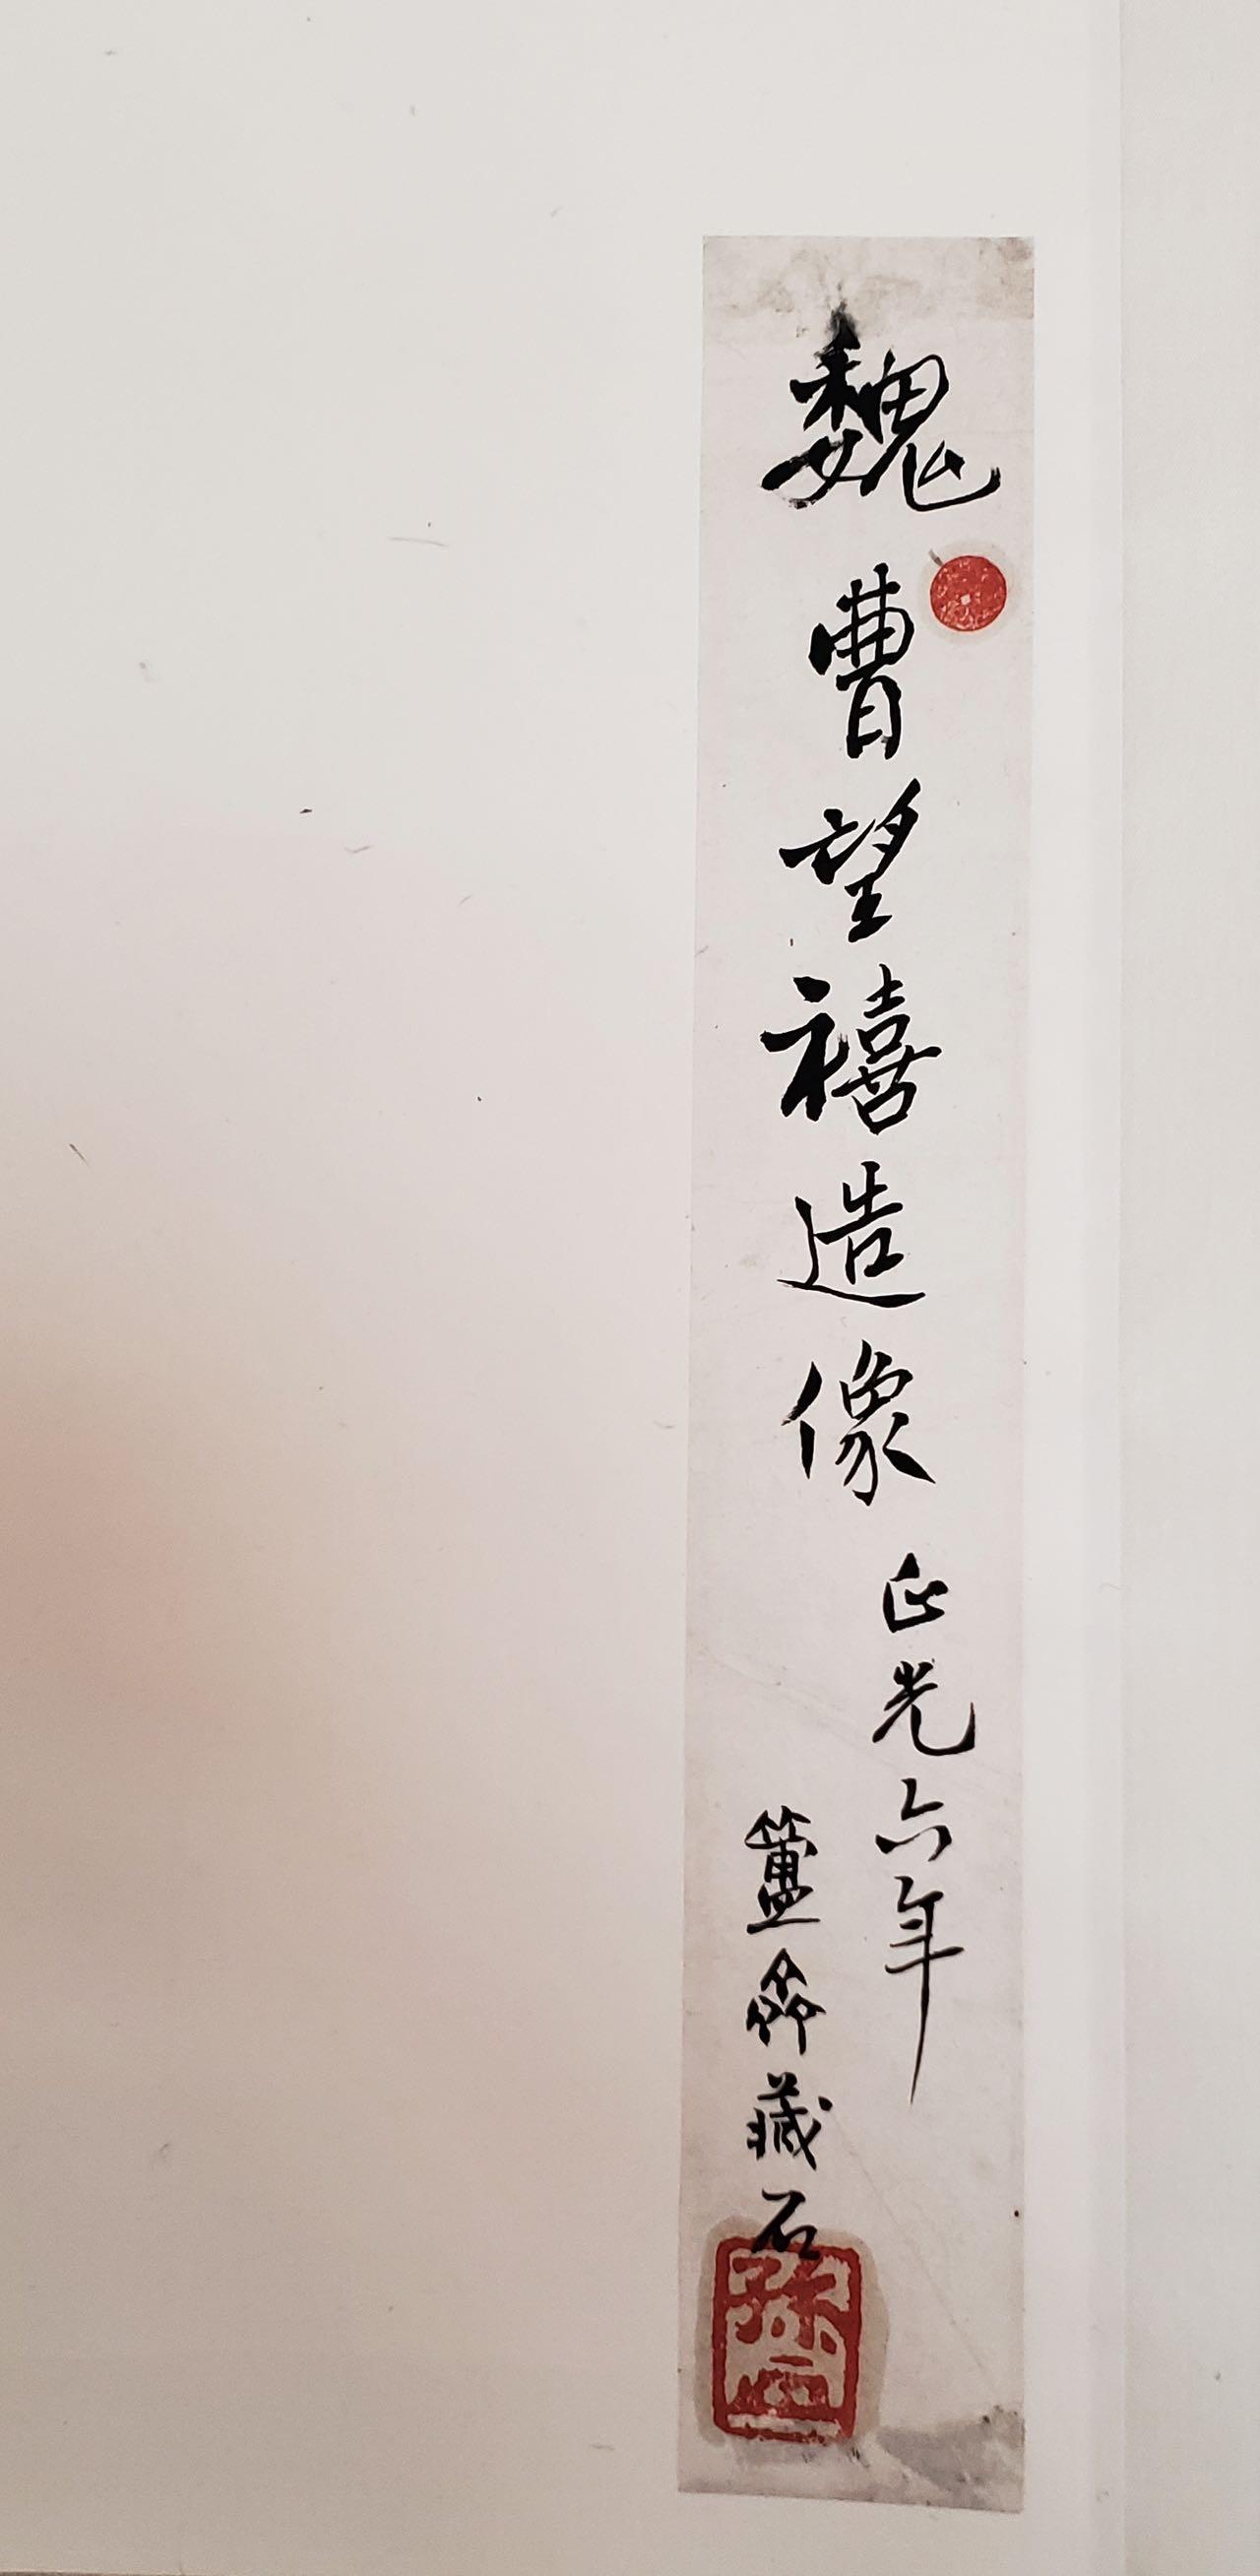 魏曹望禧造像
正光六年
簠齋藏石